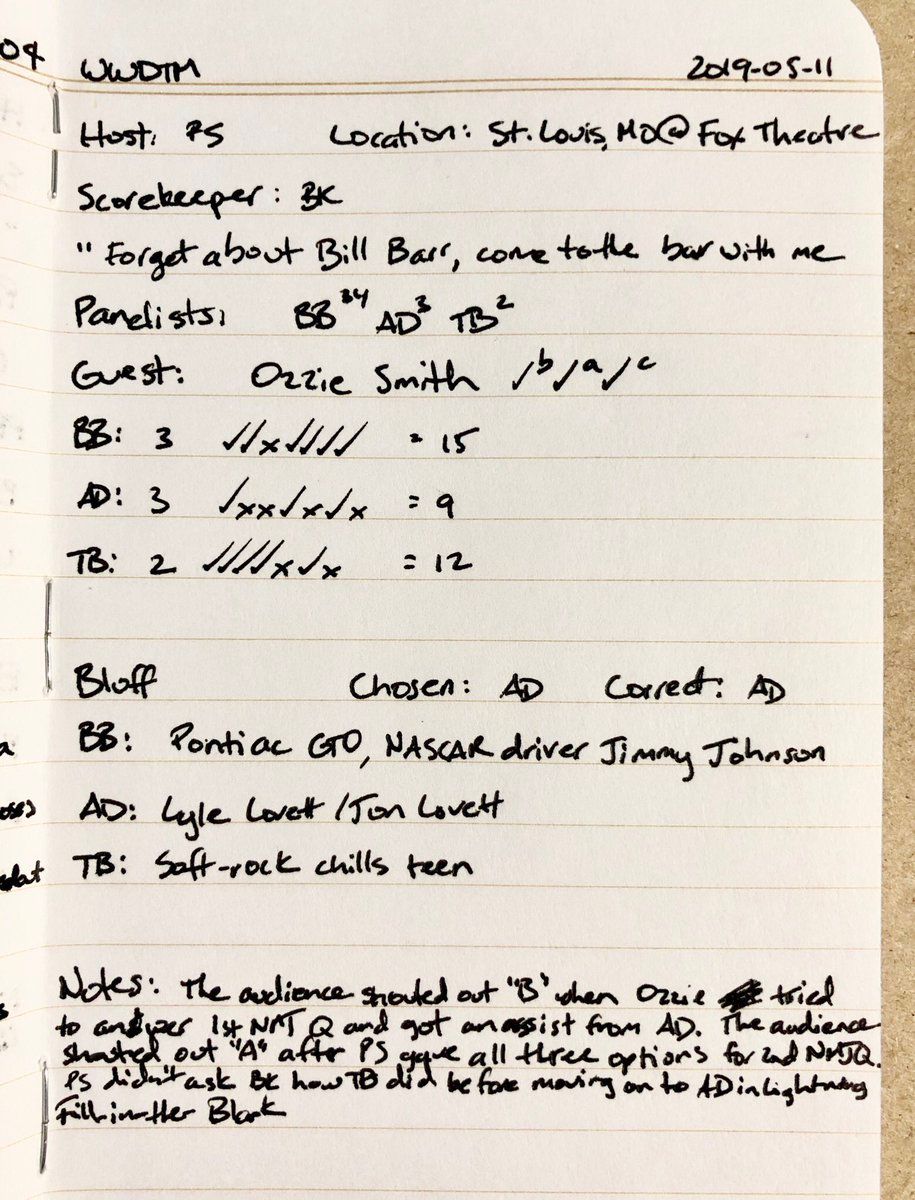 04
WWDTM 2019-05-11
Host: PS Location: St. Louis, MO @ Fox Theatre
Scorekeeper: BK
"Forget about Bill Barr, come to the bar with me
Panelists: BB³⁴ AD³ TB²
Guest: Ozzie Smith ✓ᵇ ✓ᵃ ✓ᶜ
BB: 3 ✓✓x✓✓✓✓ = 15
AD: 3 ✓xx✓x✓x = 9
TB: 2 ✓✓✓✓x✓x = 12
Bluff Chosen: AD Correct: AD
BB: Pontiac GTO, NASCAR driver Jimmy Johnson
AD: Lyle Lovett / Jon Lovett
TB: Soft-rock chills teen
Notes: The audience shouted out "B" when Ozzie tried
to answer 1st NMJ Q and got an assist from AD. The audience
shouted out "A" after PS gave all three options for 2nd NMJQ.
PS didn't ask BK how TB did before moving on to AD in Lightning
Fill-in-the Blank